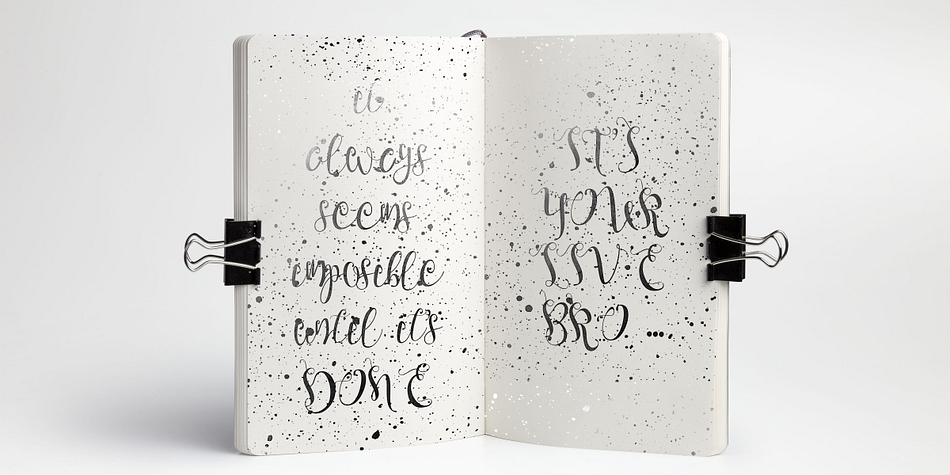 it
always
seems
imposible
until it's
DONE
IT'S
YOUR
LIVE
BRO ...